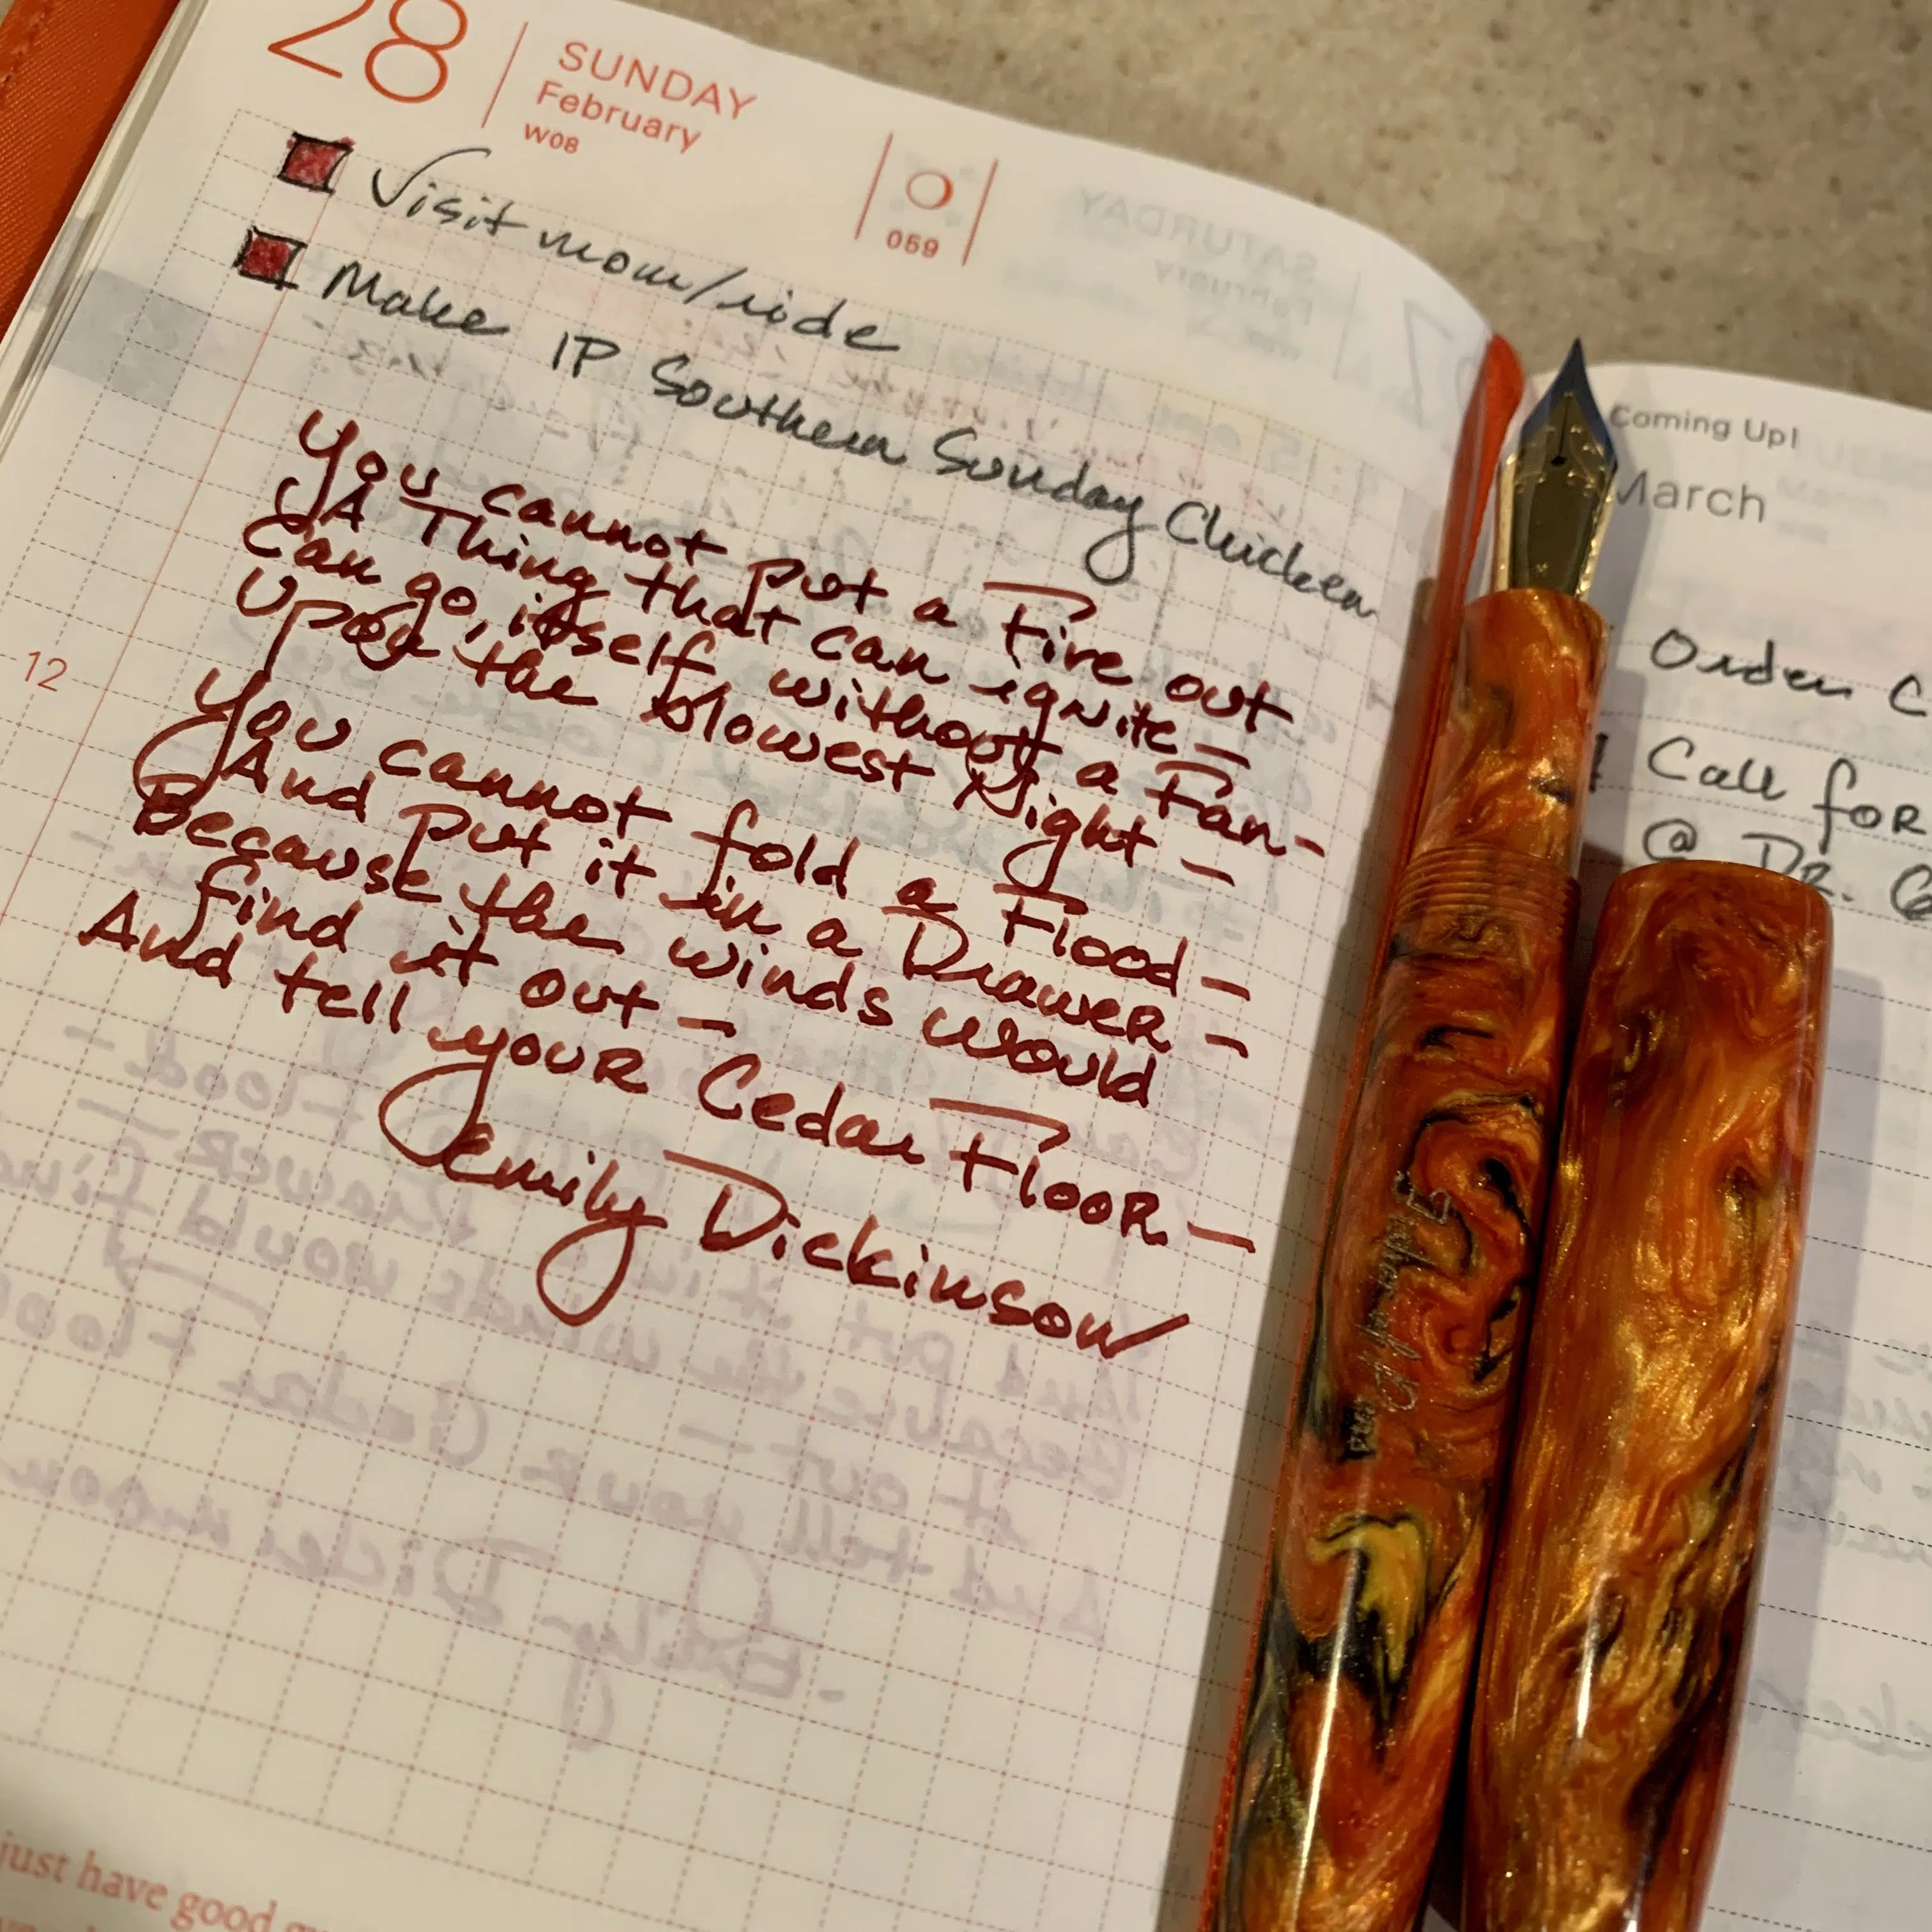 28
SUNDAY
February
W08
059
Visit mom/ride
Make IP Southern Sunday Chicken
You cannot put a Fire out
A Thing that can ignite —
Can go, itself without a Fan —
Upon the slowest Night —
You cannot fold a Flood —
And put it in a Drawer —
Because the winds would
find it out —
And tell your Cedar Floor —
Emily Dickinson
12
just have good
Coming Up!
March
Order C
Call for
@ DR.